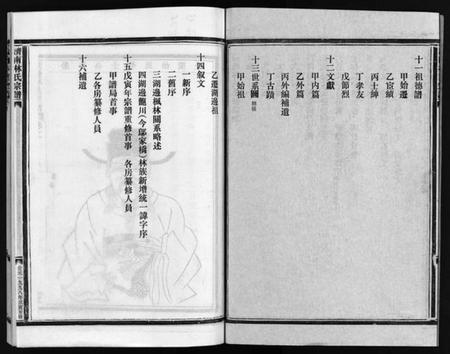 十一祖德譜
甲始遷
乙宦績
丙士紳
丁孝友
戊節烈
十二文獻
甲内篇
乙外篇
丙外編補遺
丁古蹟
十三世系圖
甲始祖
乙遷湖邊祖
十四叙文
一新序
二舊序
三湖邊楓林關系略述
四湖邊鮑川(今鄔家橋)林族新增統一諱字序
十五戊寅年宗譜重修首事 各房纂修人員
甲譜局首事
乙各房纂修人員
十六補遺
濟南林氏宗譜